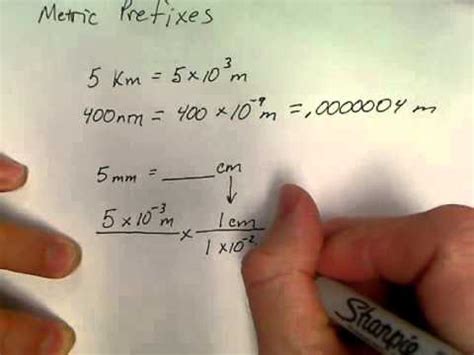 Metric Prefixes
5 Km = 5×10³ m
400nm = 400 × 10⁻⁹ m = .0000004 m
5 mm = ____ cm
↓
5 × 10⁻³ m × 1 cm
1 × 10⁻²
Sharpie